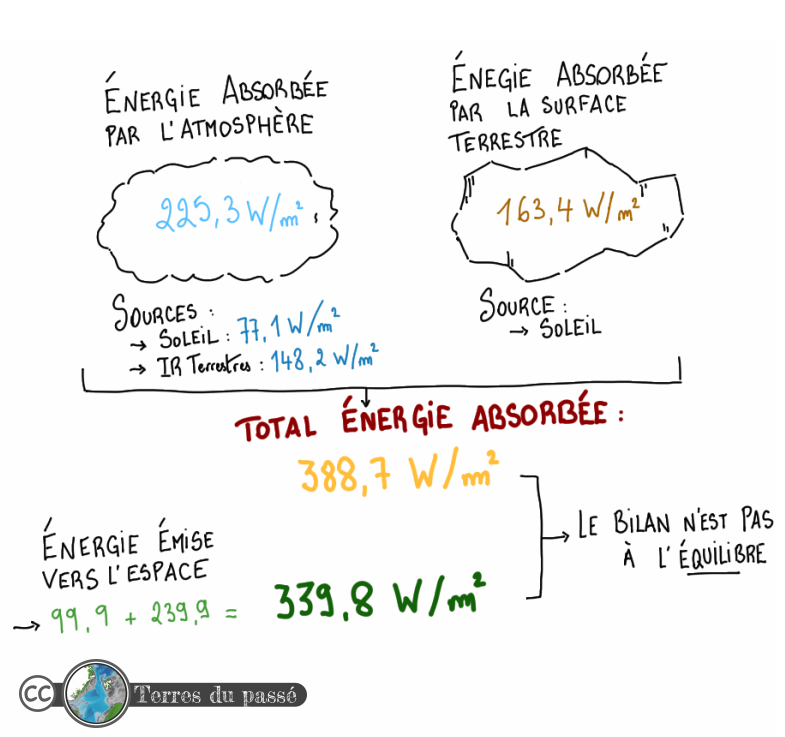 ÉNERGIE ABSORBÉE
PAR L'ATMOSPHÈRE
225,3 W/m²
SOURCES :
→ SOLEIL : 77,1 W/m²
→ IR Terrestres : 148,2 W/m²
ÉNEGIE ABSORBÉE
PAR LA SURFACE
TERRESTRE
163,4 W/m²
SOURCE :
→ SOLEIL
TOTAL ÉNERGIE ABSORBÉE :
388,7 W/m²
ÉNERGIE ÉMISE
VERS L'ESPACE
→ 99,9 + 239,9 = 339,8 W/m²
→ LE BILAN N'EST PAS
À L'ÉQUILIBRE
CC
Terres du passé